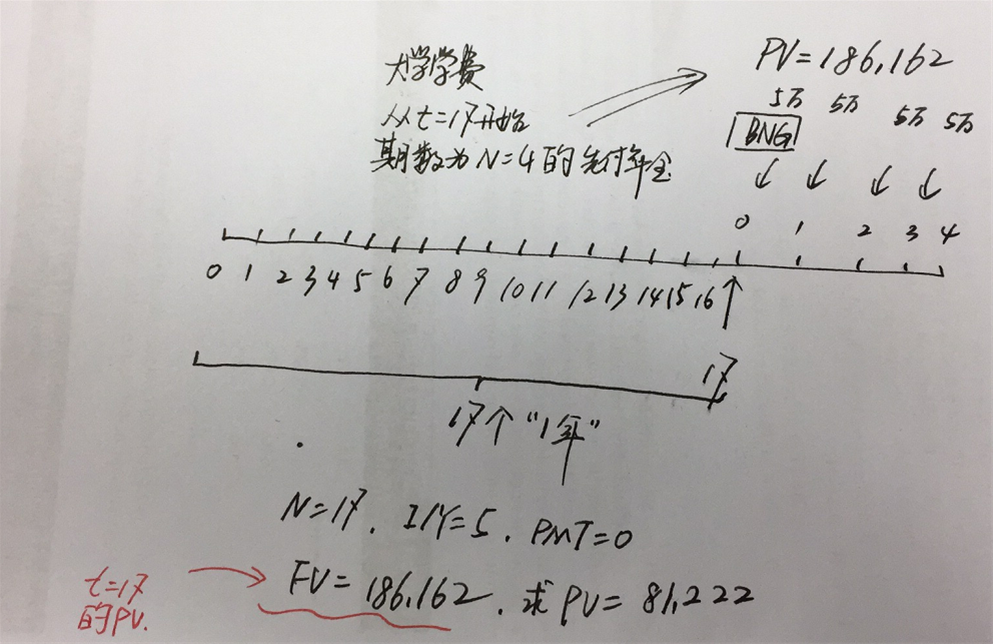 大学学费
从t=17开始
期数为N=4的先付年金
PV=186,162
5万 5万 5万 5万
BNG
0 1 2 3 4
0 1 2 3 4 5 6 7 8 9 10 11 12 13 14 15 16
17
17个“1年”
N=17. I/Y=5. PMT=0
t=17
的PV.
FV=186,162. 求PV=81,222